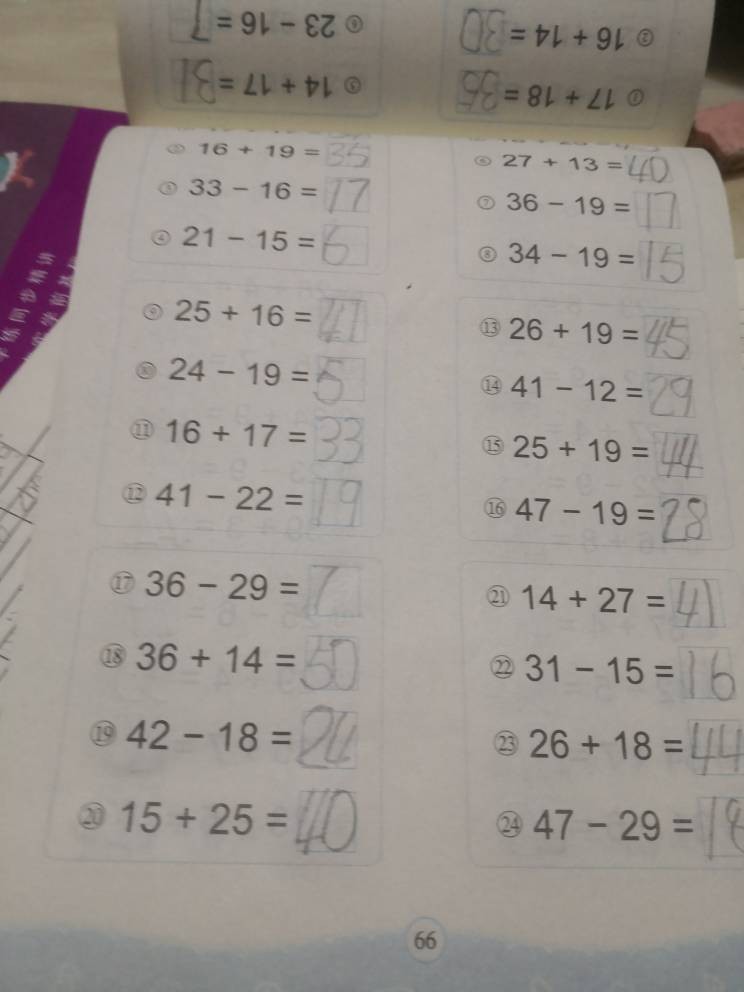 ⑥ 23 − 16 = 7
② 16 + 14 = 30
⑤ 14 + 17 = 31
① 17 + 18 = 35
② 16 + 19 = 35
③ 33 − 16 = 17
④ 21 − 15 = 6
⑥ 27 + 13 = 40
⑦ 36 − 19 = 17
⑧ 34 − 19 = 15
⑨ 25 + 16 = 41
⑩ 24 − 19 = 5
⑪ 16 + 17 = 33
⑫ 41 − 22 = 19
⑬ 26 + 19 = 45
⑭ 41 − 12 = 29
⑮ 25 + 19 = 44
⑯ 47 − 19 = 28
⑰ 36 − 29 = 7
⑱ 36 + 14 = 50
⑲ 42 − 18 = 24
⑳ 15 + 25 = 40
㉑ 14 + 27 = 41
㉒ 31 − 15 = 16
㉓ 26 + 18 = 44
㉔ 47 − 29 = 18
66